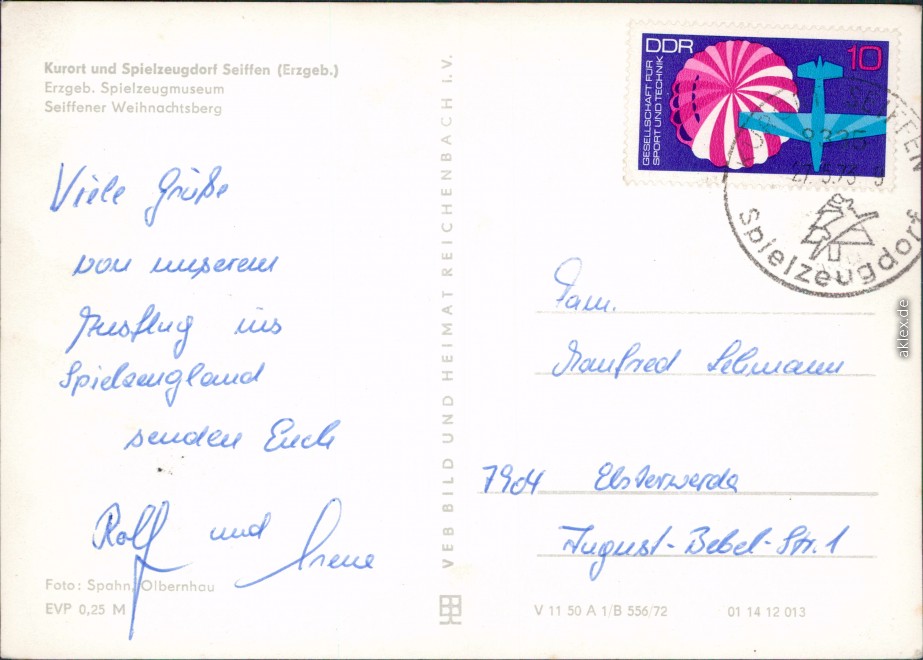 Kurort und Spielzeugdorf Seiffen (Erzgeb.)
Erzgeb. Spielzeugmuseum
Seiffener Weihnachtsberg
Viele Grüße
von unserem
Ausflug ins
Spielzeugland
senden Euch
Rolf und Irene
Foto: Spahn, Olbernhau
EVP 0,25 M
VEB BILD UND HEIMAT REICHENBACH I. V.
DDR
10
GESELLSCHAFT FÜR
SPORT UND TECHNIK
SEIFFEN
9335
27.5.73-9
Spielzeugdorf
Fam.
Manfred Lehmann
7904 Elsterwerda
August-Bebel-Str. 1
V 11 50 A 1/B 556/72
01 14 12 013
aklex.de